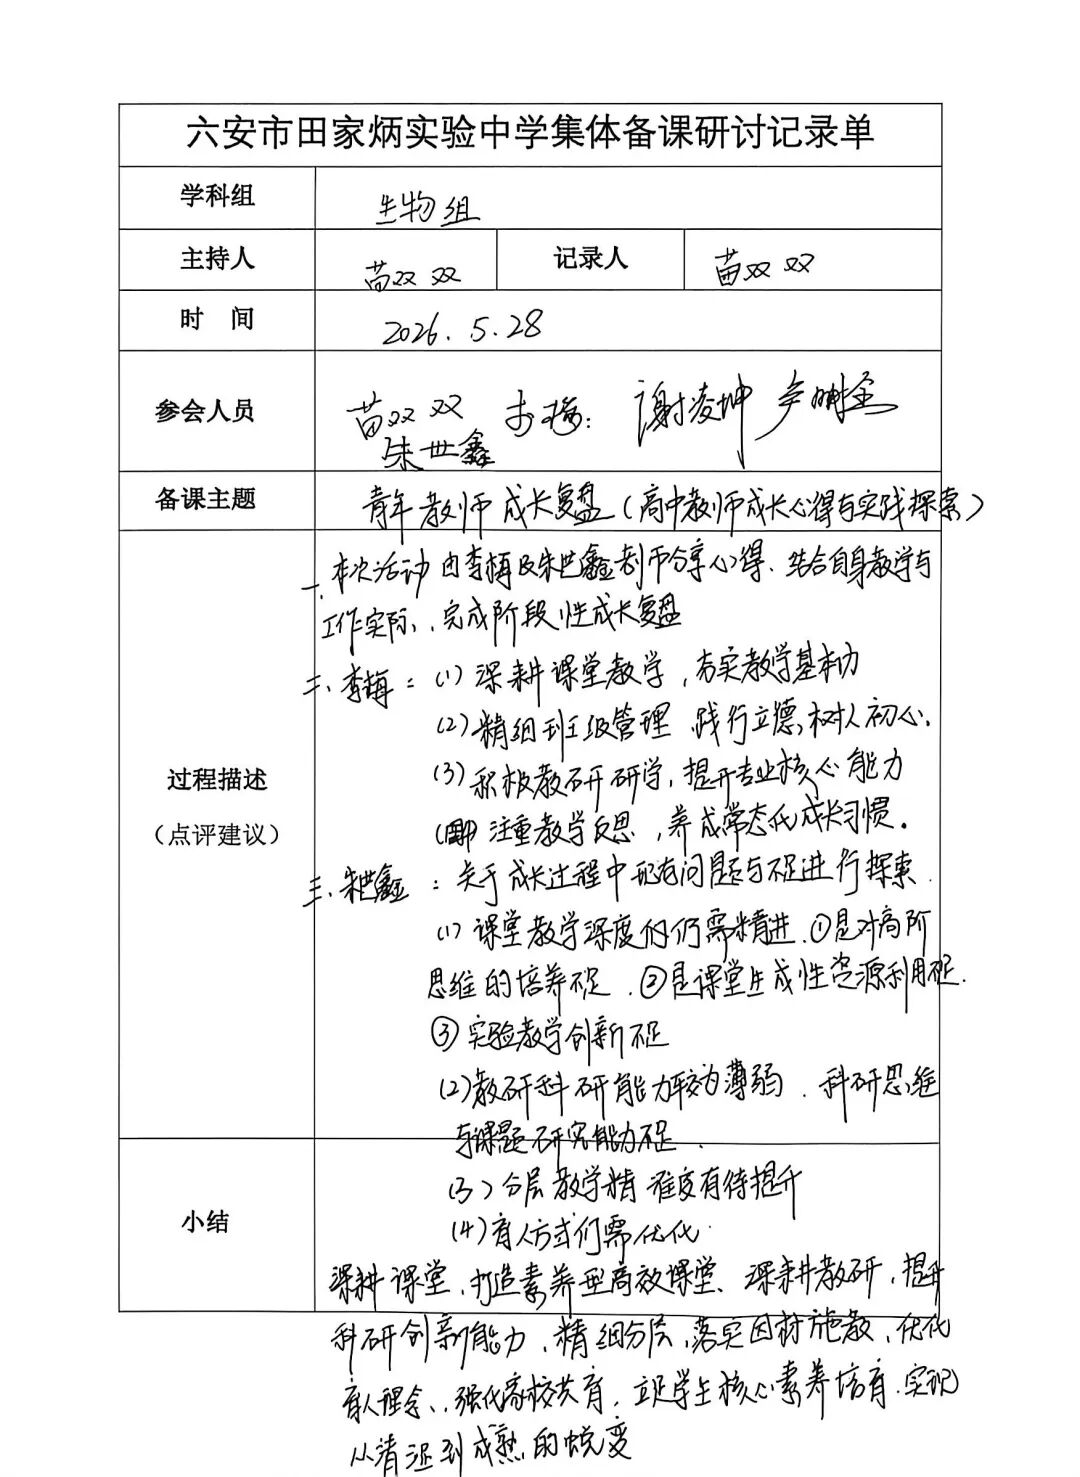 六安市田家炳实验中学集体备课研讨记录单
学科组 生物组
主持人 苗双双 记录人 苗双双
时 间 2026.5.28
参会人员 苗双双 李梅 谢凌坤
朱世鑫
备课主题 青年教师成长复盘(高中教师成长心得与实践探索)
一、本次活动由李梅及朱世鑫老师分享心得、结合自身教学与
工作实际、完成阶段性成长复盘
二、李梅:(1)深耕课堂教学,夯实教学基本功
(2)精细班级管理 践行立德树人初心.
(3)积极教研研学,提升专业核心能力
过程描述
(点评建议)
注重教学反思,养成常态化成长习惯。
三.朱世鑫:关于成长过程中现存问题与不足进行探索.
(1)课堂教学深度仍需精进.①是对高阶
思维的培养不足.②是课堂生成性资源利用不足.
③实验教学创新不足
(2)教研科研能力较为薄弱.科研思维
与课题研究能力不足.
小结
(3)分层教学精准度有待提升
(4)育人方式仍需优化.
深耕课堂,打造素养型高效课堂、深耕教研,提升
科研创新能力、精细分层,落实因材施教、优化
育人理念、强化家校共育,立足学生核心素养培育.实现
从青涩到成熟的蜕变